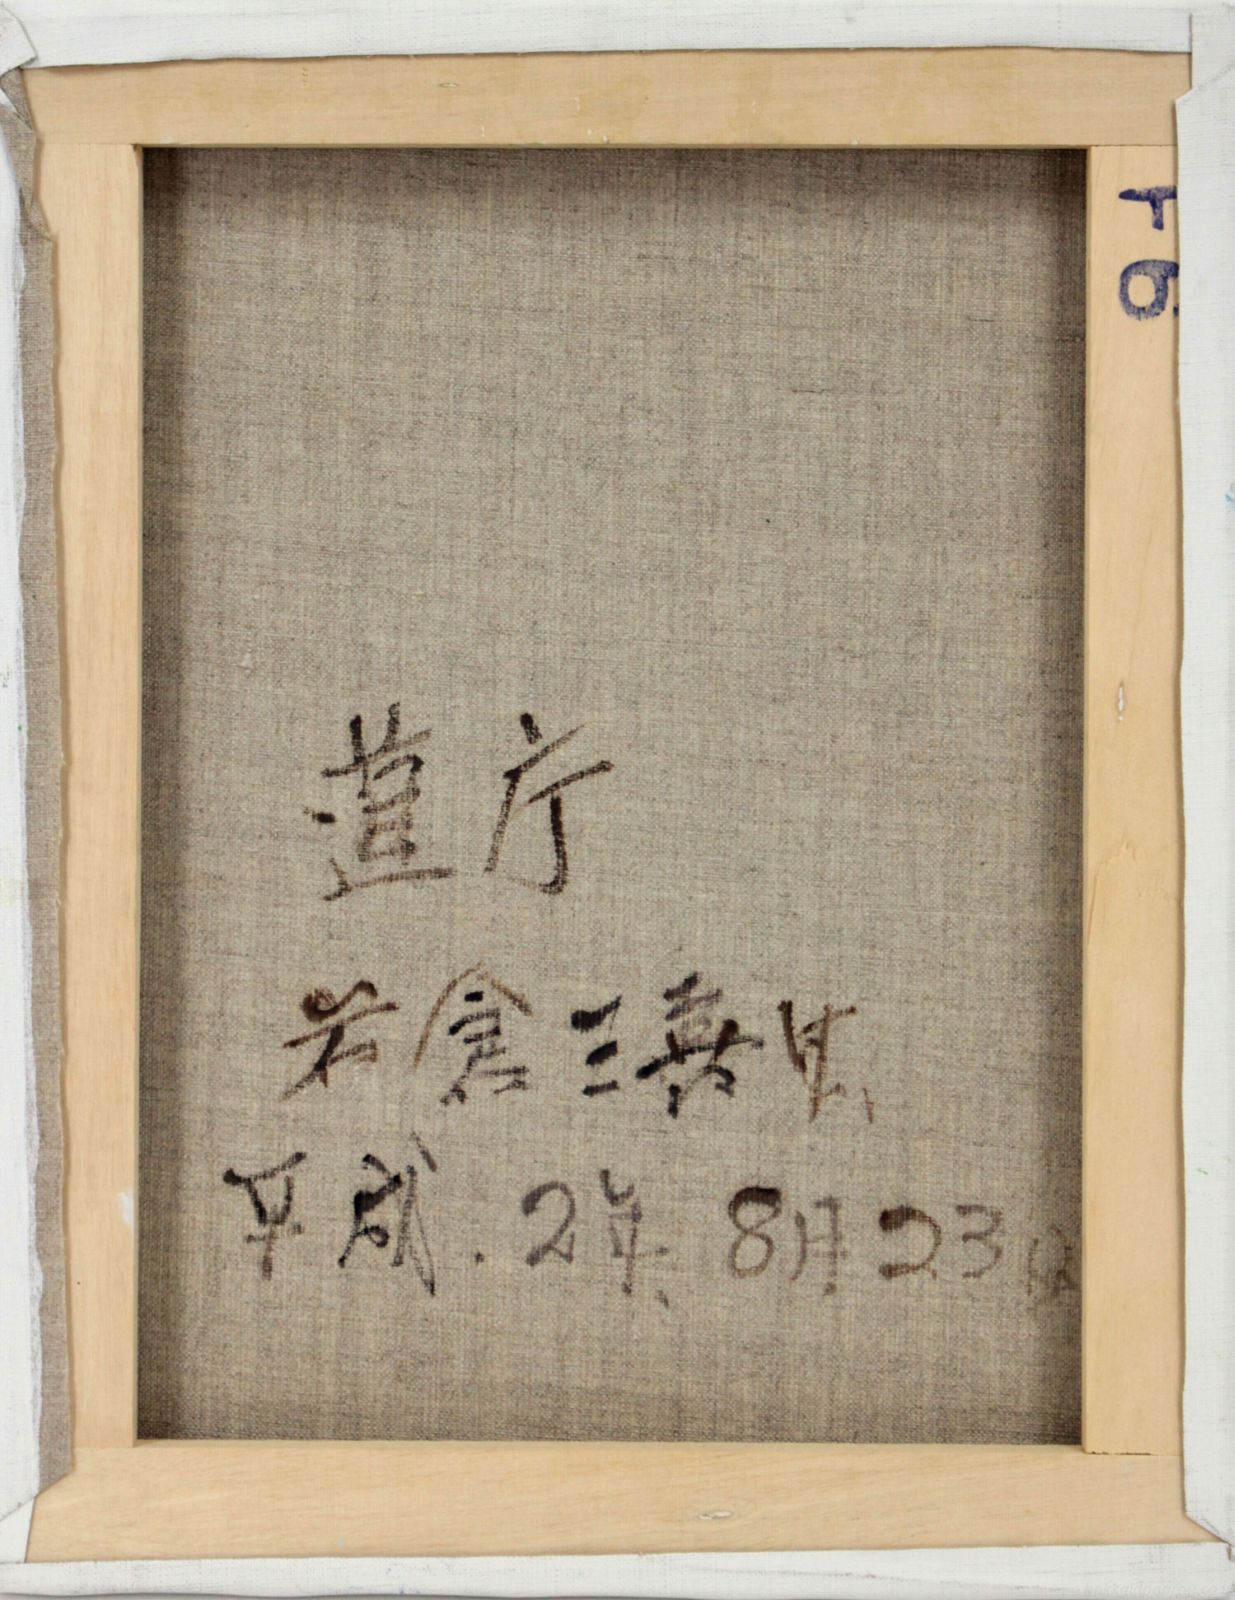 F6
道庁
岩倉三喜男
平成.2年.8月23